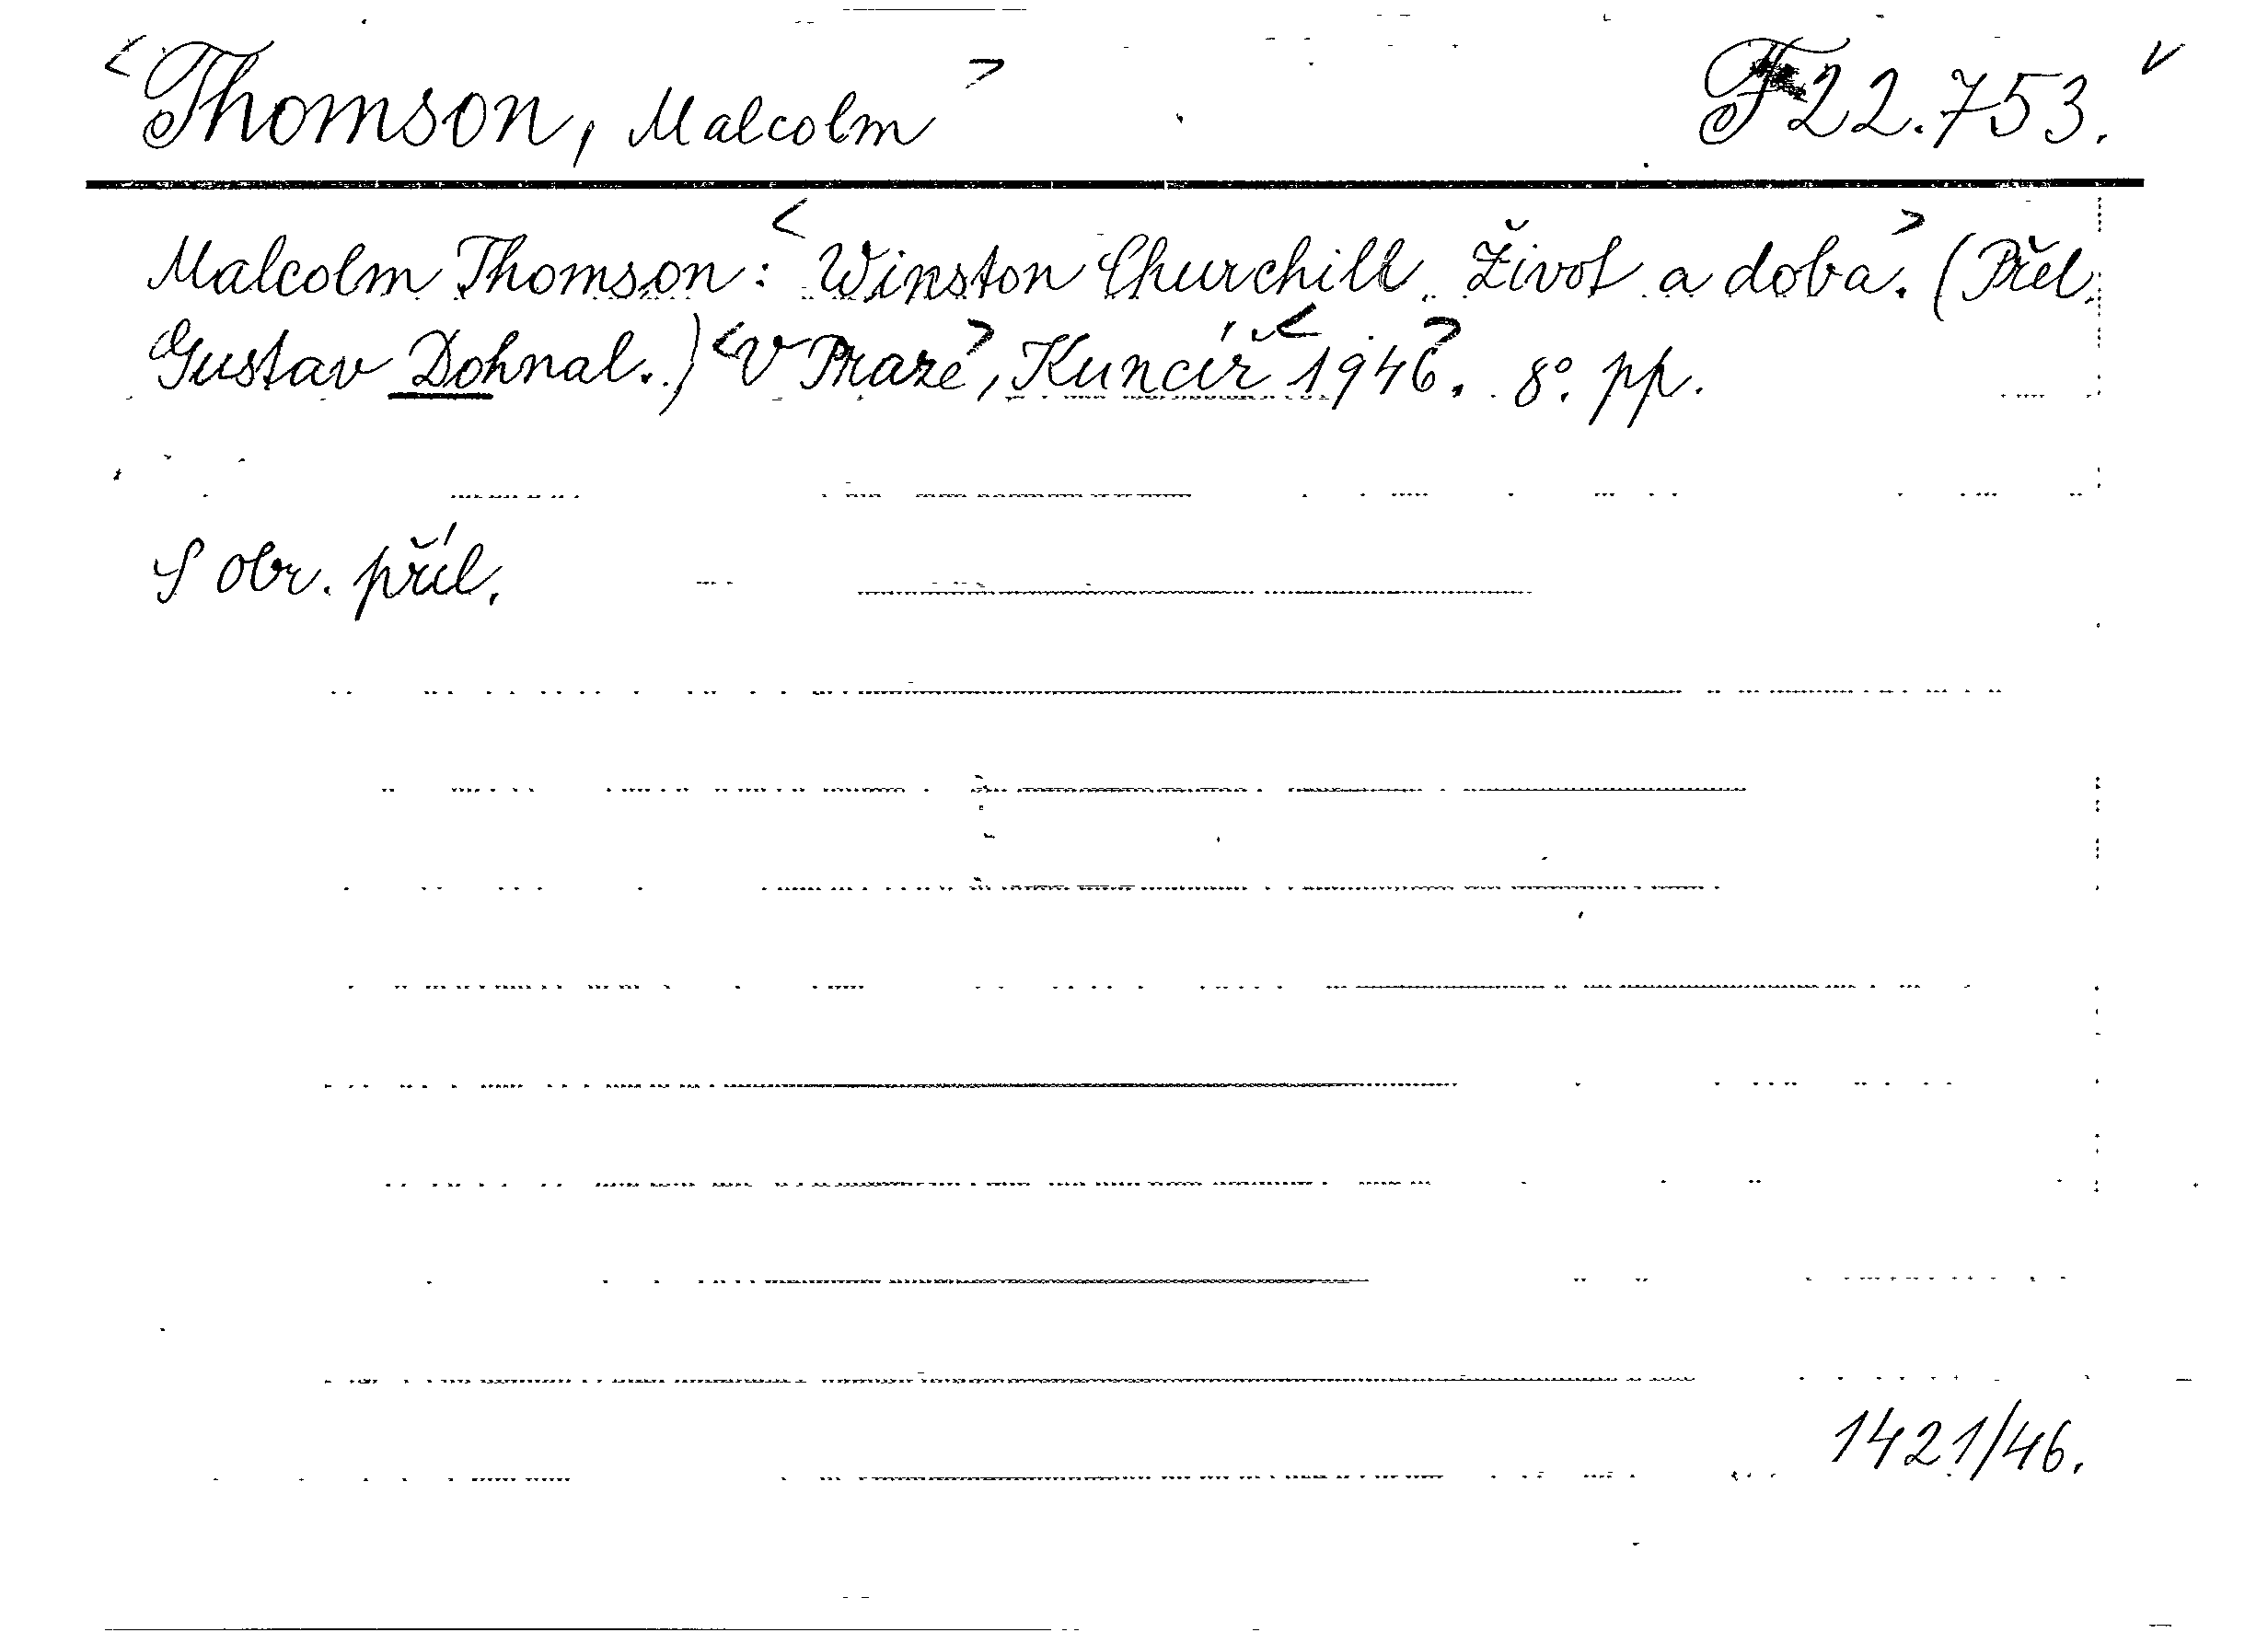 <Thomson, Malcolm> F 22.753. v
Malcolm Thomson: <Winston Churchill. Život a doba>. (Přel.
Gustav Dohnal.) <V Praze>, Kuncíř <1946>. 8°. pp.
S obr. příl.
1421/46.